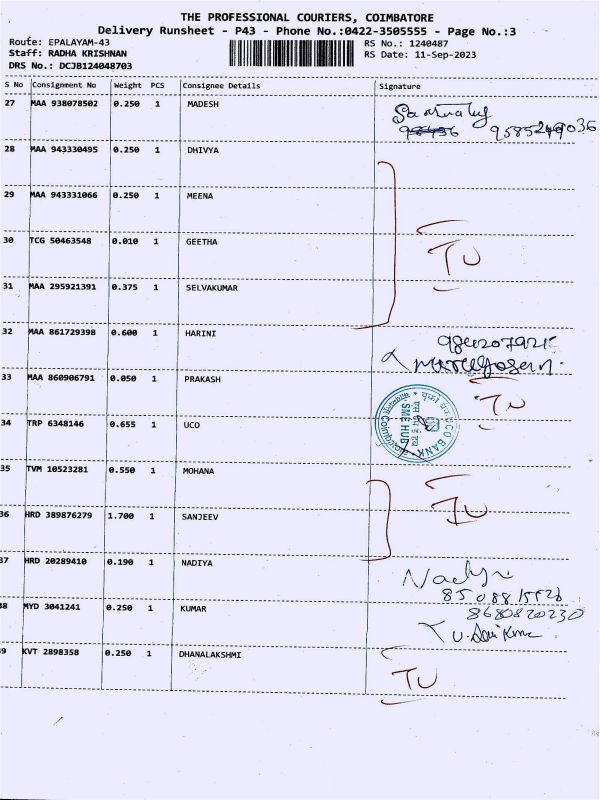 THE PROFESSIONAL COURIERS, COIMBATORE
Delivery Runsheet - P43 - Phone No.:0422-3505555 - Page No.:3
Route: EPALAYAM-43
RS No.: 1240487
Staff: RADHA KRISHNAN
RS Date: 11-Sep-2023
DRS No.: DCJB124048703
S No Consignment No Weight PCS Consignee Details Signature
27 MAA 938078502 0.250 1 MADESH
9585249036
28 MAA 943330495 0.250 1 DHIVYA
29 MAA 943331066 0.250 1 MEENA
30 TCG 50463548 0.010 1 GEETHA
TU
31 MAA 295921391 0.375 1 SELVAKUMAR
32 MAA 861729398 0.600 1 HARINI
33 MAA 860906791 0.050 1 PRAKASH
TU
34 TRP 6348146 0.655 1 UCO
UCO BANK
SME HUB
35 TVM 10523281 0.550 1 MOHANA
36 HRD 389876279 1.700 1 SANJEEV
TU
37 HRD 20289410 0.190 1 NADIYA
38 MYD 3041241 0.250 1 KUMAR
8680820230
39 KVT 2898358 0.250 1 DHANALAKSHMI
TU